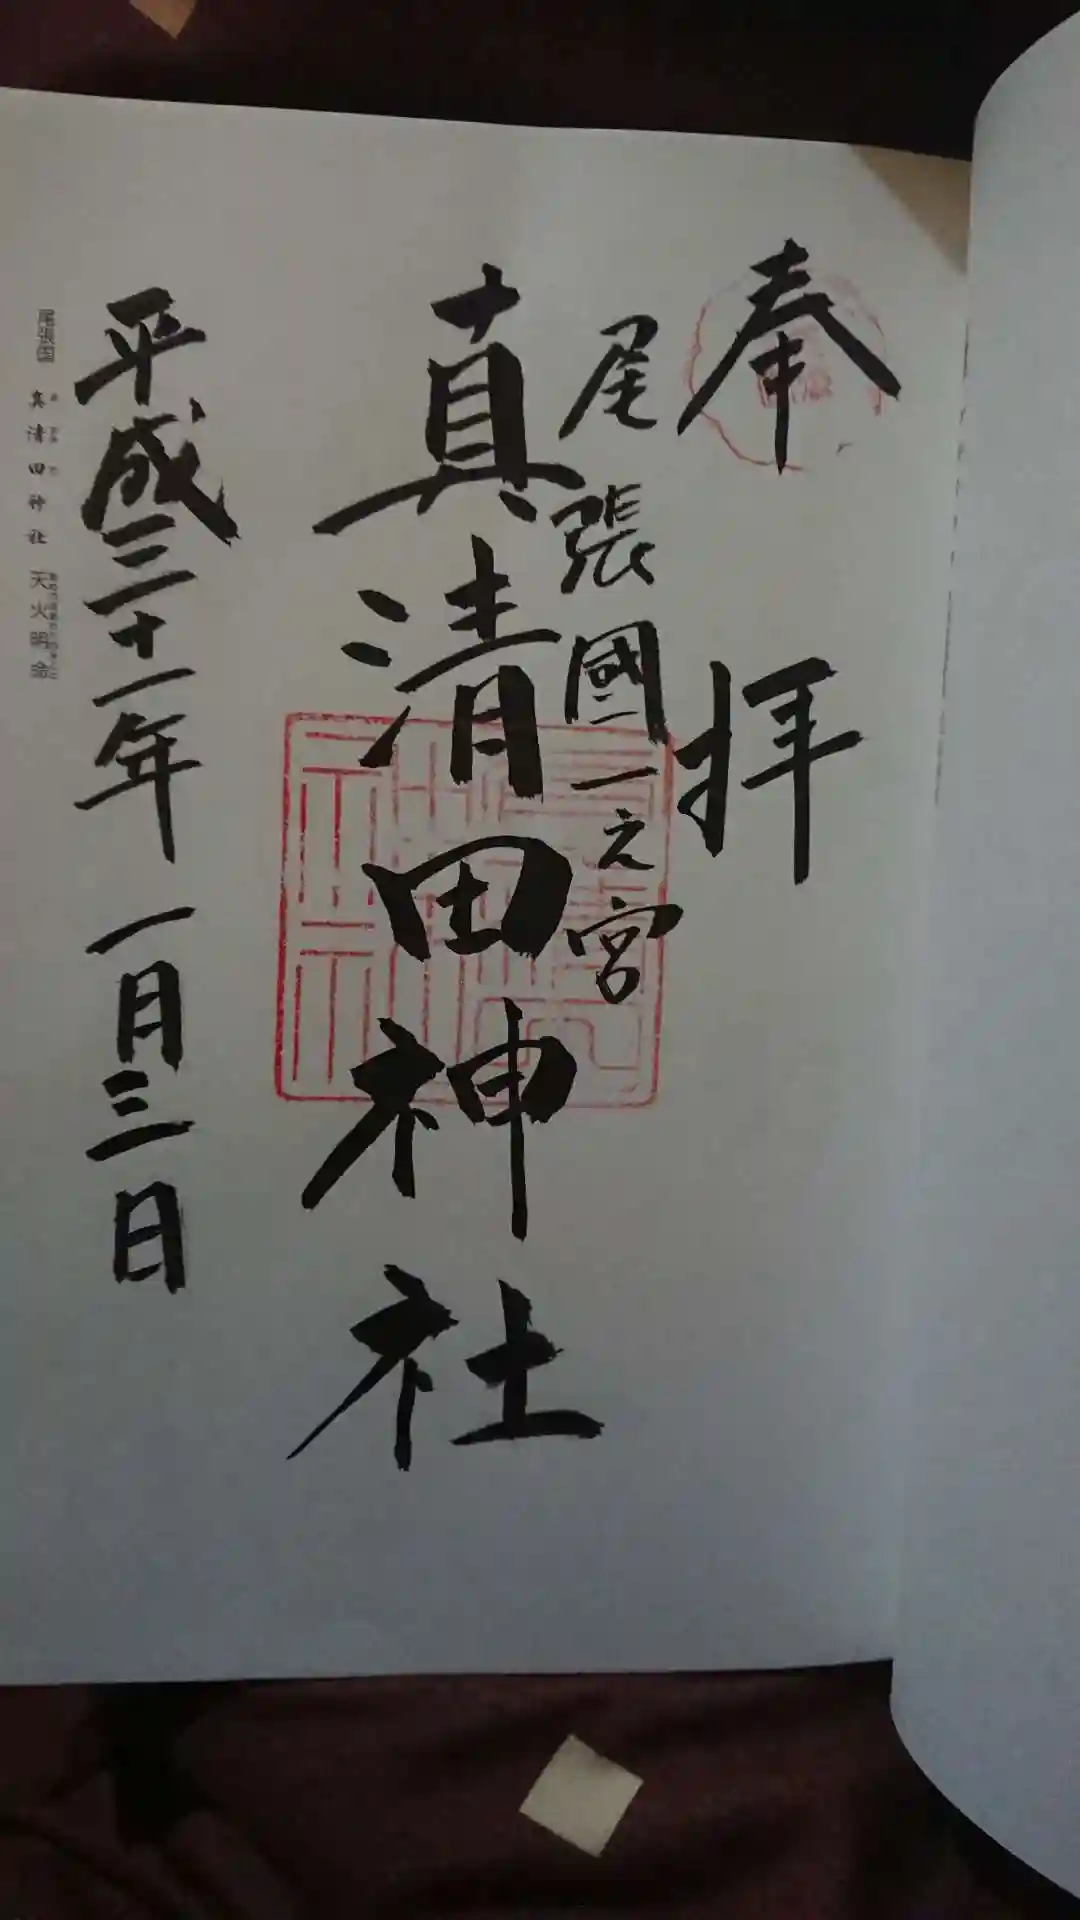 奉拝
尾張國一之宮
真清田神社
平成三十一年一月三日
尾張国 真清田神社 天火明命